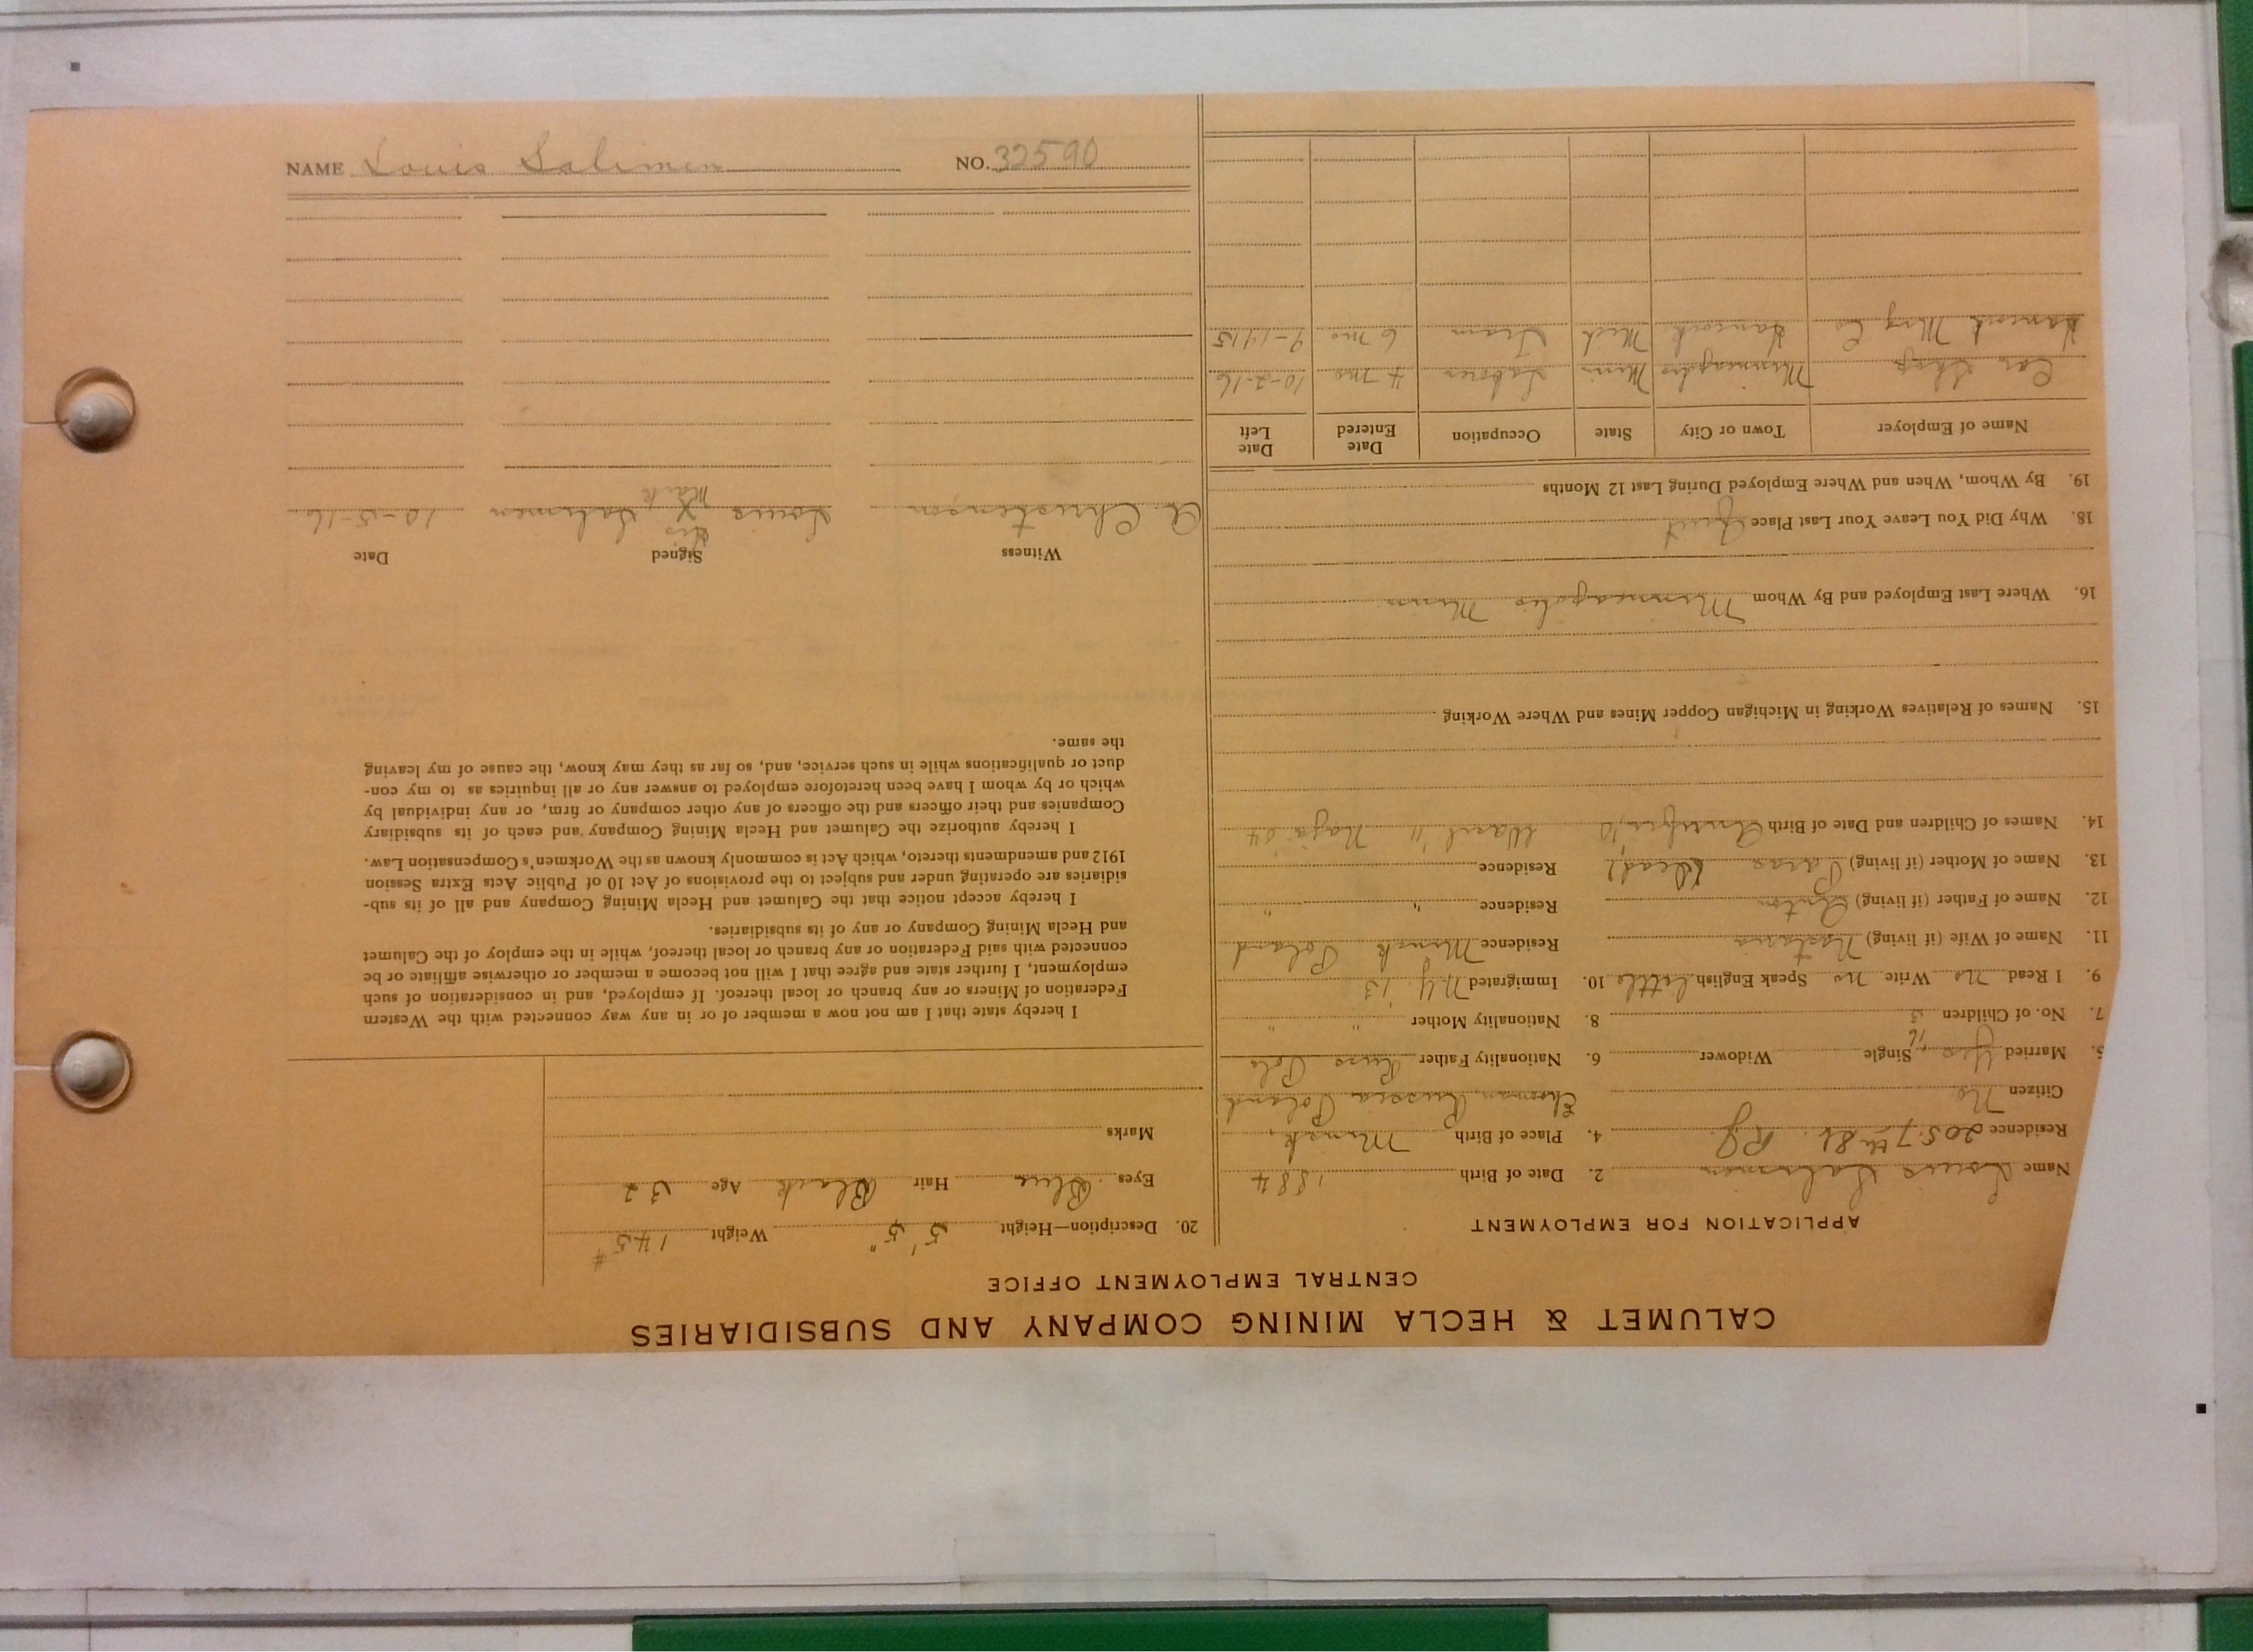 CALUMET & HECLA MINING COMPANY AND SUBSIDIARIES
CENTRAL EMPLOYMENT OFFICE
APPLICATION FOR EMPLOYMENT
Name Louis Salimon 2. Date of Birth 1884
Residence 205-7th St. 4. Place of Birth Minsk,
Citizen No Russia Poland
5. Married Yes Single Widower 6. Nationality Father Russ Pole
7. No. of Children 3 8. Nationality Mother " "
9. I Read no Write no Speak English little 10. Immigrated N.Y. '13
11. Name of Wife (if living) Residence Minsk Poland
12. Name of Father (if living) Anton Residence " "
13. Name of Mother (if living) (dead) Residence
14. Names of Children and Date of Birth
15. Names of Relatives Working in Michigan Copper Mines and Where Working
16. Where Last Employed and By Whom Minneapolis Minn
18. Why Did You Leave Your Last Place Quit
19. By Whom, When and Where Employed During Last 12 Months
Name of Employer Town or City State Occupation Date Entered Date Left
Car Shop Minneapolis Minn Laborer 4 mo 10-2-16
Hancock Mng Co Hancock Mich Tram 6 mo 9-1915
20. Description—Height 5' 5" Weight 145#
Eyes Blue Hair Black Age 32
Marks
I hereby state that I am not now a member of or in any way connected with the Western
Federation of Miners or any branch or local thereof. If employed, and in consideration of such
employment, I further state and agree that I will not become a member or otherwise affiliate or be
connected with said Federation or any branch or local thereof, while in the employ of the Calumet
and Hecla Mining Company or any of its subsidiaries.
I hereby accept notice that the Calumet and Hecla Mining Company and all of its sub-
sidiaries are operating under and subject to the provisions of Act 10 of Public Acts Extra Session
1912 and amendments thereto, which Act is commonly known as the Workmen's Compensation Law.
I hereby authorize the Calumet and Hecla Mining Company and each of its subsidiary
Companies and their officers and the officers of any other company or firm, or any individual by
which or by whom I have been heretofore employed to answer any or all inquiries as to my con-
duct or qualifications while in such service, and, so far as they may know, the cause of my leaving
the same.
Witness Signed Date
his
A. Christenson Louis X Salimon 10-5-16
mark
NAME Louis Salimon NO. 32590